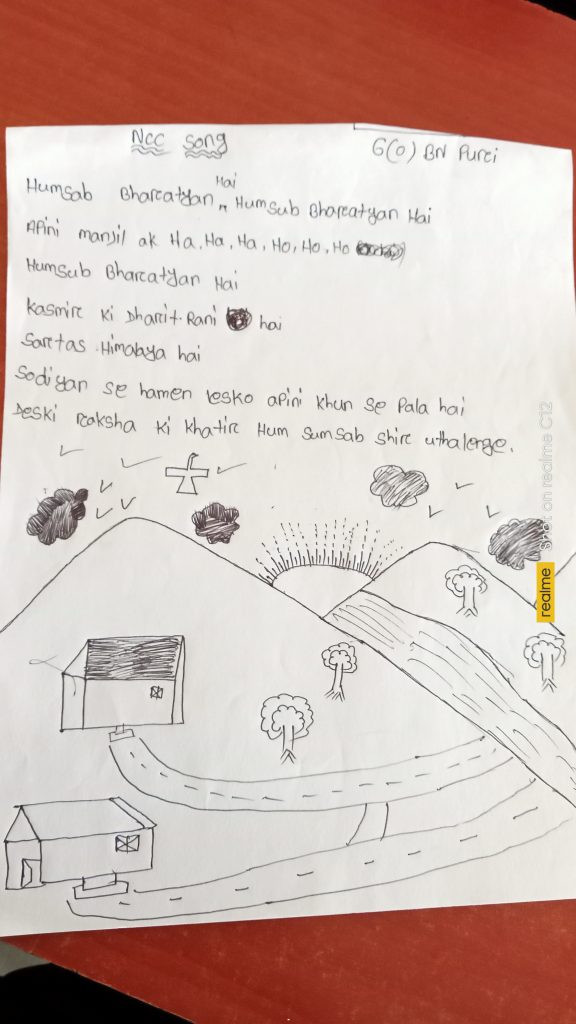 Ncc Song
6(0) BN Purci
Humsab Bharcatyan Hai Humsub Bharcatyan Hai
Apini manjil ak Ha, Ha, Ha, Ho, Ho, Ho
Humsub Bharcatyan Hai
Kasmirc ki Dharcit. Rani hai
Sarctas .Himalaya hai
Sodiyan se hamen lesko apini khun se Pala hai
Deski rcaksha ki khatirc Hum Sumsab Shirc uthalenge.
realme Shot on realme C12